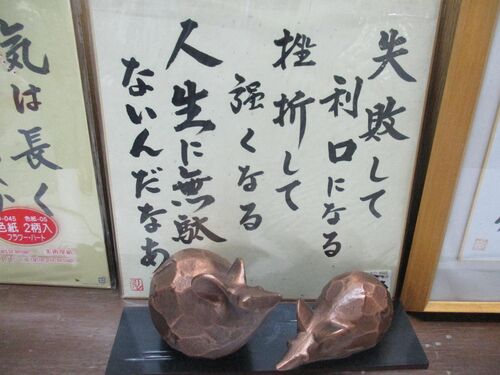 失敗して
利口になる
挫折して
強くなる
人生に無駄
ないんだなあ
気は長く
色紙-05
色紙 2柄入
フラワー・ハート